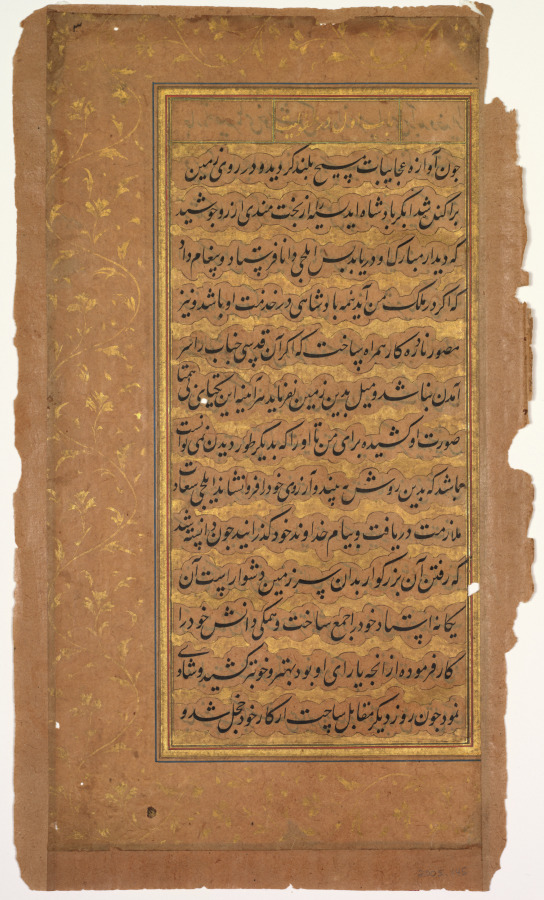 جون آوازه عجایبات مسیح بلند کردید و در روی زمین
براکنده شد ابکر بادشاه ایدیسه از بخت مندی ارزو جوشید
که دیدار مبارک او دریابد بس ایلجی دانا فرستاد و پیغام داد
که اکر در ملک من آید نیمه بادشاهی در خدمت او باشد و نیز
مصور نادره کار همراه ساخت که اکر آن قدسی جناب را سر
آمدن نباشد و میل بدین زمین نفرماید هرآینه این
صورت او کشیده برای من تا او را که بدیکر طور دیدن نمی توانست
باشد که بدین روش به بیند و آرزوی خود را فرونشاند ایلجی سعادت
ملازمت دریافت و پیام خداوند خود کذرانید جون دانسته شد
که رفتن آن بزرکوار بدان سرزمین دشوار است آن
یکانه استاد خود را جمع ساخت و همکی دانش خود را
کار فرموده از انجه یارای او بود بهتر و خوبتر کشید و شادی
نمود جون روز دیکر مقابل ساخت از کار خود خجل شد و